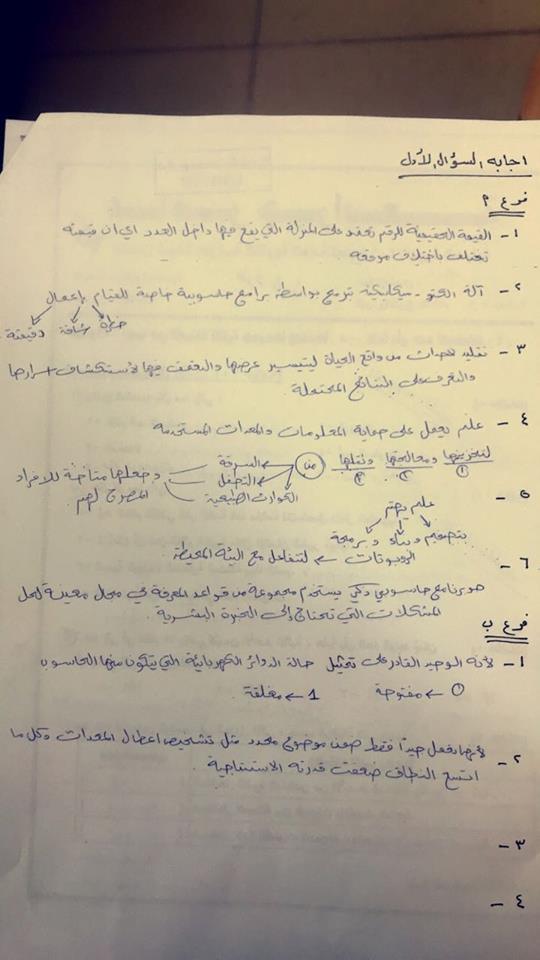 اجابة السؤال الأول
فرع م
١- القيمة الحقيقية للرقم تعتمد على المنزلة التي يقع فيها داخل العدد اي ان قيمته
تختلف باختلاف موقعه
٢- آلة الكترو-ميكانيكية تبرمج بواسطة برامج حاسوبية خاصة للقيام بإعمال
خطرة شاقة دقيقة
٣- تقليد لأحداث من واقع الحياة ليتيسر عرضها والتعمق فيها لأستكشاف اسرارها
والتعرف على النتائج المحتملة
٤- علم يعمل على حماية المعلومات والمعدات المستخدمة
لتخزينها ومعالجتها ونقلها من السرقة وجعلها متاحة للافراد
١ ٢ ٣ التطفل المصرح لهم
الكوارث الطبيعية
٥- علم يهتم
بتصميم وبناء وبرمجة
الروبوتات ← لتتفاعل مع البيئة المحيطة
٦-
هو برنامج حاسوبي ذكي يستخدم مجموعة من قواعد المعرفة في مجال معينة لحل
المشكلات التي تحتاج إلى الخبرة البشرية.
فرع ب
١- لأنه الوحيد القادر على تمثيل حالة الدوائر الكهربائية التي يتكون منها الحاسوب
0 ← مفتوحة 1 ← مغلقة
٢- لأنها تعمل جيداً فقط ضمن موضوع محدد مثل تشخيص اعطال المعدات وكل ما
اتسع النطاق ضعفت قدرته الاستنتاجية.
٣-
٤-